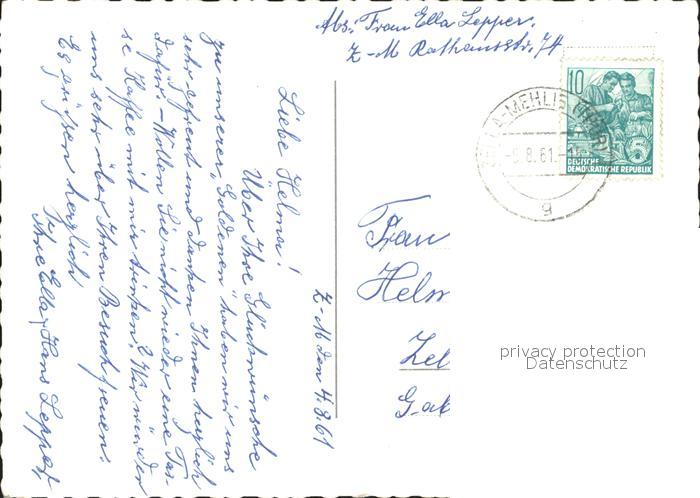 Abs. Frau Ella Lepper.
Z-M Rathausstr. 74
10
DEUTSCHE
DEMOKRATISCHE REPUBLIK
5
LA-MEHLIS
-5.8.61.-
g
Z-M den 4.8.61
Liebe Helma!
Über Ihre Glückwünsche
zu unserer "Goldenen" haben wir uns
sehr gefreut und danken Ihnen herzlich
dafür. - Wollen Sie nicht wieder eine Tas-
se Kaffee mit mir trinken? Wir würden
uns sehr über Ihren Besuch freuen.
Es grüßen herzlich
Ihre Ella, Hans Lepper,
Frau
Helm
Zel
G-ak
privacy protection
Datenschutz